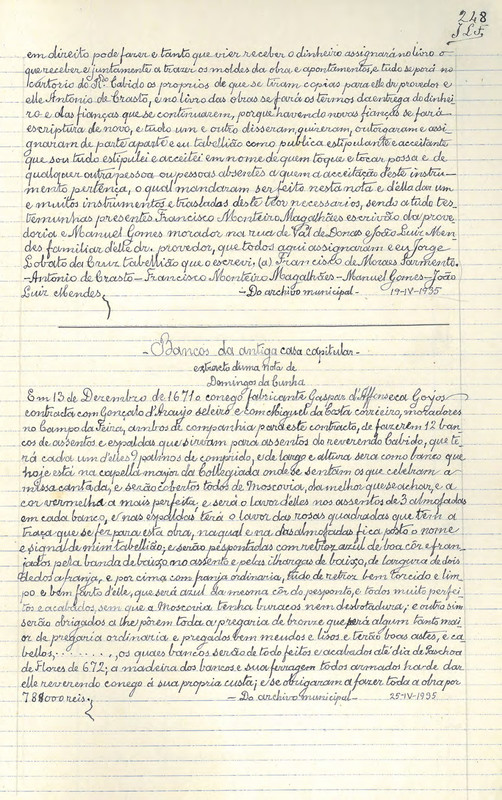 248
J.L.F.
em direito pode fazer e tanto que vier receber o dinheiro assignará no livro o
que receber e juntamente a trarei os moldes da obra e apontamentos, e tudo se porá no
Cartorio do R.do Cabido os proprios de que se tiram copias para elle dr. provedor e
elle Antonio de Crasto, e no livro das obras se fará os termos da entrega do dinhei-
ro e das fianças que se continuarem, porque havendo novas fianças se fará
escriptura de novo, e tudo um e outro disseram, quizeram, outorgaram e assi-
gnaram de parte a parte e eu tabellião como publica estipulante e acceitante
que sou tudo estipulei e acceitei em nome de quem toque e tocar possa e de
qualquer outra pessoa ou pessoas absentes a quem a acceitação deste instru-
mento pertença, o qual mandaram ser feito nesta nota e d'élla dar um
e muitos instrumentos e traslados deste teor necessarios, sendo a tudo tes-
temunhas presentes Francisco Monteiro Magalhães escrivão da prove-
doria e Manuel Gomes morador na rua de Val de Donas e João Luiz Men-
des familiar d'elle dr. provedor, que todos aqui assignaram e eu Jorge
Lobato da Cruz tabellião que o escrevi, (a) Francisco de Moraes Sarmento.
-Antonio de Crasto - Francisco Monteiro Magalhães - Manuel Gomes - João
Luiz Mendes. - Do archivo municipal - 19-IV-935
- Bancos da antiga casa capitular -
extracto duma nota de
Domingos da Cunha
Em 13 de Dezembro de 1671 o conego fabricante Gaspar d'Affonseca Goyos
contracta com Gonçalo d'Araujo seleiro e com Miguel da Costa corrieiro, moradores
no Campo da Feira, ambos de companhia para este contracto, de fazerem 12 ban-
cos de assentos e espaldas que sirvam para assentos do reverendo Cabido, que te-
rá cada um d'elles 9 palmos de comprido, e de largo e altura sera como o banco que
hoje está na capella mayor da Collegiada onde se sentam os que celebram a
missa cantada; e serão cobertos todos de Moscovia, da melhor que se achar, e a
côr vermelha a mais perfeita; e será o lavor d'elles nos assentos de 3 almofadas
em cada banco, e nas espaldas terá o lavor das rosas quadradas que tem a
traça que se fez para esta obra, na qual e na das almofadas fica posto o nome
e signal de mim tabellião; e serão pespontados com retroz azul de boa côr e fran-
jados pela banda de baixo no assento e pelas ilhargas de baixo, de largura de dois
dedos a franja, e por cima com franja ordinaria, tudo de retroz bem torcido e lim-
po e bem farto d'elle, que será azul da mesma côr do pesponto, e todos muito perfei-
tos e acabados, sem que a Moscovia tenha buracos nem desbotadura; e outro sim
serão obrigados a lhe pôrem toda a pregaria de bronze que será algum tanto mai-
or de pregaria ordinaria e pregados bem meudos e lisos e terão boas astes, e ca-
bellos, ........, os quaes bancos serão de todo feitos e acabados até dia de Paschoa
de Flores de 672; a madeira dos bancos e sua ferragem todos armados ha-de dar
elle reverendo conego á sua propria custa; e se obrigaram a fazer toda a obra por
78$000 reis. - Do archivo municipal - 25-IV-935